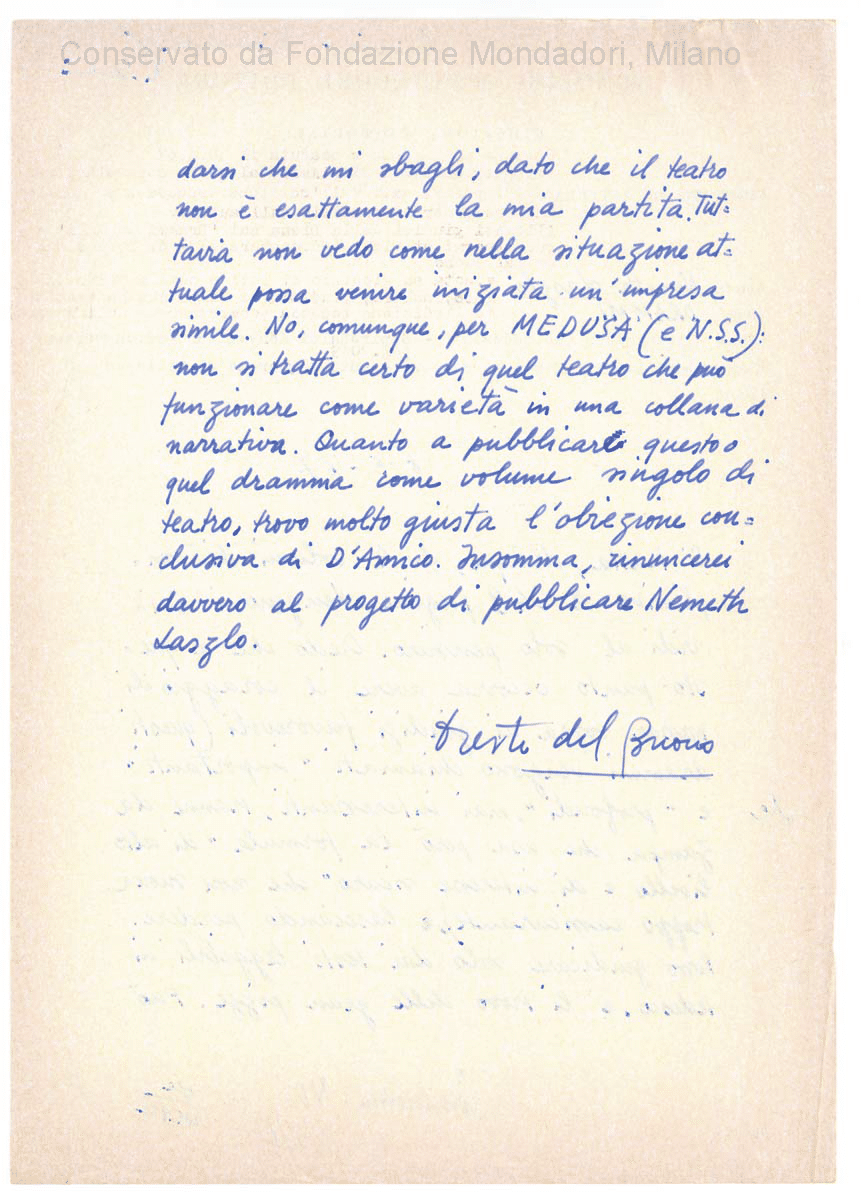 Conservato da Fondazione Mondadori, Milano
darsi che mi sbagli, dato che il teatro
non è esattamente la mia partita. Tut=
tavia non vedo come nella situazione at=
tuale possa venire iniziata un'impresa
simile. No, comunque, per MEDUSA (e N.S.S.):
non si tratta certo di quel teatro che può
funzionare come varietà in una collana di
narrativa. Quanto a pubblicare questo o
quel dramma come volume singolo di
teatro, trovo molto giusta l'obiezione con=
clusiva di D'Amico. Insomma, rinuncerei
davvero al progetto di pubblicare Nemeth
Laszlo.
Oreste del Buono